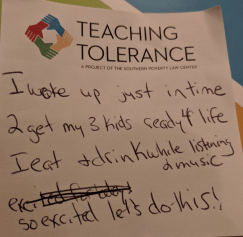 TEACHING
TOLERANCE
A PROJECT OF THE SOUTHERN POVERTY LAW CENTER
I woke up just in time
2 get my 3 kids ready 4 life
I eat & drink while listening
2 music
so excited let's do this!